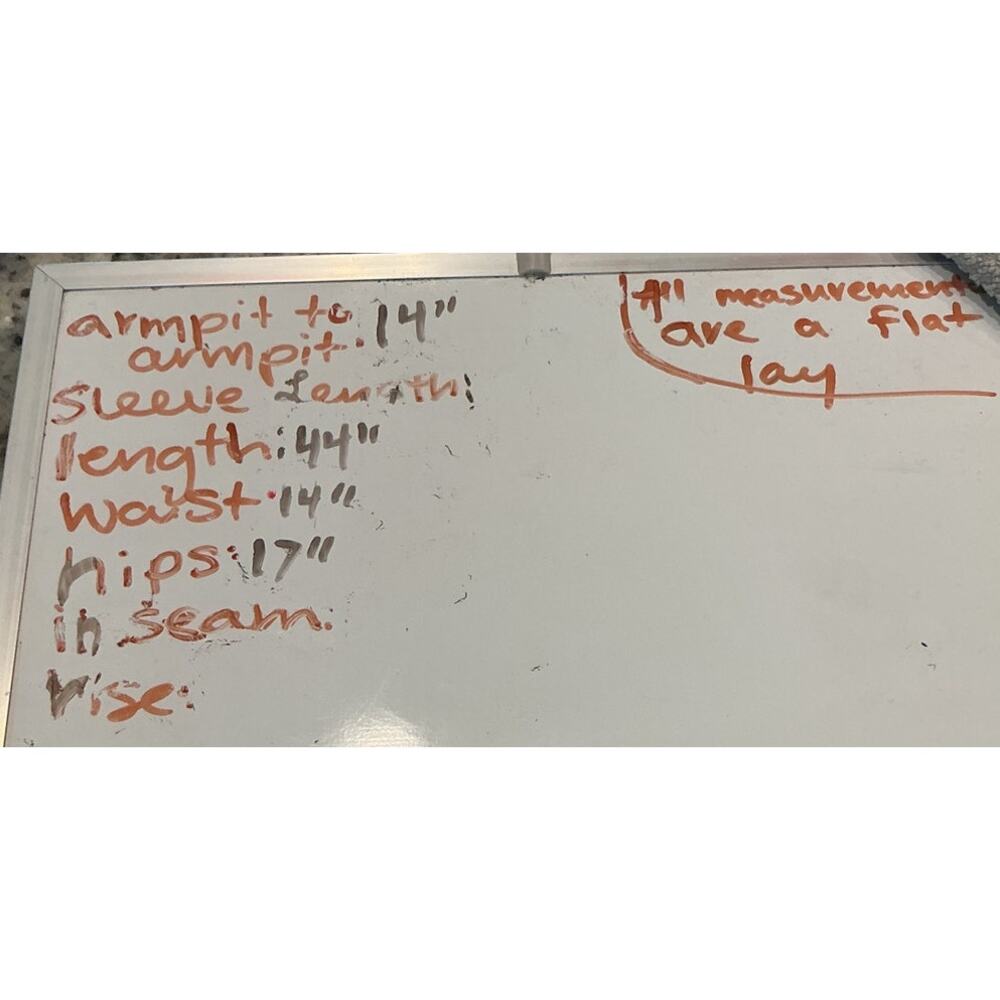 armpit to 14"
armpit:
sleeve Length:
length: 44"
waist: 14"
hips: 17"
in seam:
rise:
All measurement
are a flat
lay